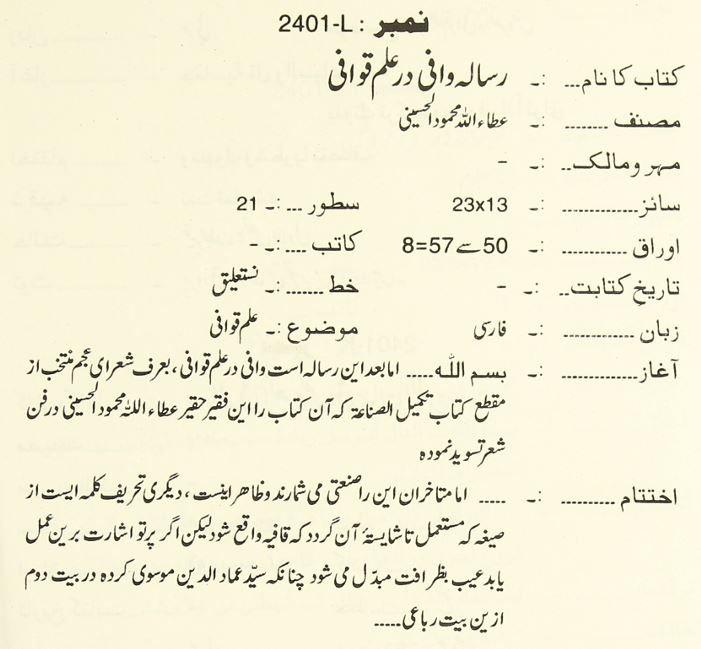 نمبر : 2401-L
کتاب کا نام... :۔ رسالہ وافی در علم قوافی
مصنف ........ :۔ عطاء اللہ محمود الحسینی
مہر و مالک.. :۔ -
سائز............. :۔ 23x13 سطور ... :۔ 21
اوراق ............ :۔ 50 سے 57=8 کاتب ... :۔ -
تاریخ کتابت.. :۔ - خط ....... :۔ نستعلیق
زبان ............ :۔ فارسی موضوع :۔ علم قوافی
آغاز............. :۔ بسم اللہ ..... اما بعد این رسالہ است وافی در علم قوافی ، بعرف شعرای عجم منتخب از
مقطع کتاب تکمیل الصناعۃ کہ آن کتاب را این فقیر حقیر عطاء اللہ محمود الحسینی در فن
شعر تسوید نمودہ
اختتام .......... :۔ ..... اما متاخران این را صنعتی می شمارند و ظاہر اینست ، دیگری تحریف کلمہ ایست از
صیغہ کہ مستعمل تا شایستۂ آن گردد کہ قافیہ واقع شود لیکن اگر پرتو اشارت برین عمل
یابد عیب بظرافت مبدّل می شود چنانکہ سیّد عماد الدین موسوی کردہ در بیت دوم
ازین بیت رباعی.....